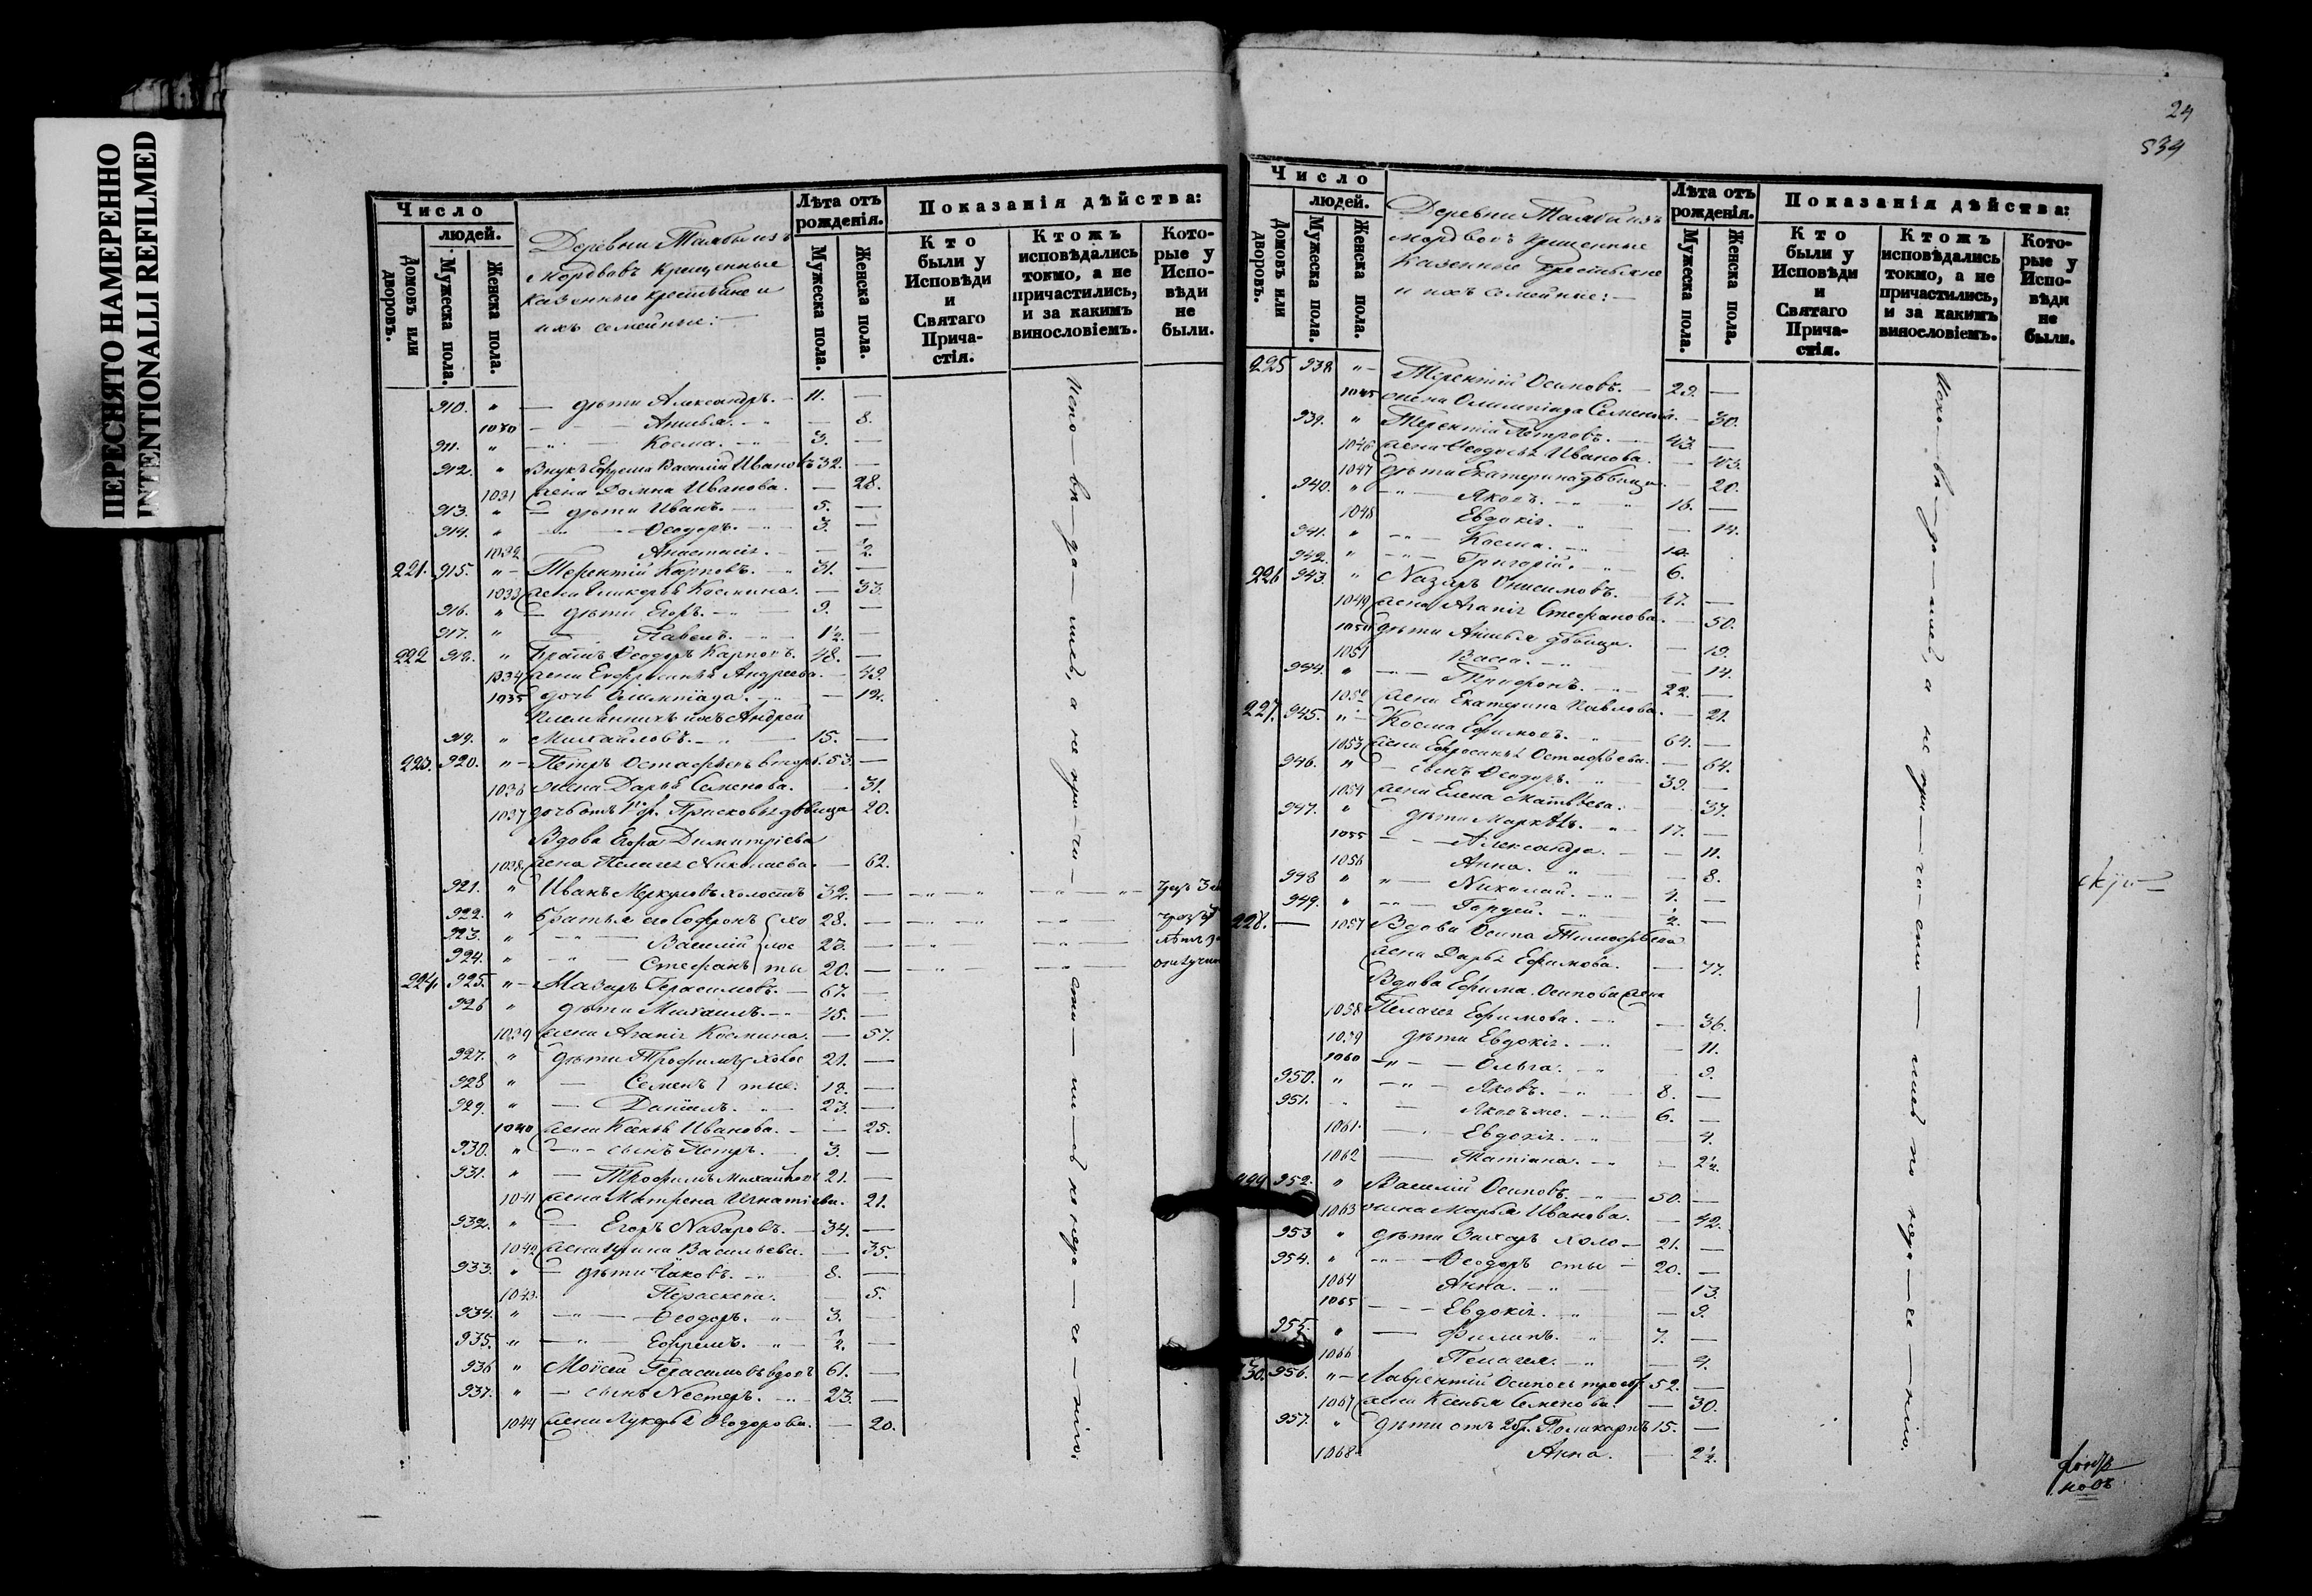 ПЕРЕСНЯТО НАМЕРЕННО
INTENTIONALLI REFILMED
Число
людей.
Домовъ или дворовъ.
Мужеска пола.
Женска пола.
Деревни
Мордвовъ Крещенные
Казенные крестьяне и
ихъ семейные:
Лѣта отъ рожденія.
Мужеска пола.
Женска пола.
Показанія дѣйства:
Кто были у Исповѣди и Святаго Прича-стія.
Ктожъ исповѣдались токмо, а не причастились, и за какимъ винословіемъ.
Кото-рые у Испо-вѣди не были.
910. " — дѣти Александръ. — 11. —
1030 — 8.
911. " — Косма. — 3. —
912. " Внукъ Ефрема Василій Ивановъ 32. —
1031 жена Домна Иванова. — 28.
913. " — дѣти Иванъ. — 5. —
914. " — Ѳеодоръ. — 3. —
1032 Анастасія. — 1/2
221. 915. " — Терентій Карповъ. — 31. —
1033 жена Гликерья Космина. — 33.
916. " — дѣти Егоръ. — 9. —
917. " Павелъ. — 1 1/2. —
222 918. " Братъ Ѳеодоръ Карповъ. 48. —
1034 жена Андреева. — 49.
1035 дочь Олимпіада. — 12.
Племянникъ ихъ Андрей
919. " Михайловъ. — 15. —
223. 920. " — Петръ Остафьевъ 53. —
1036 жена Дарья Семенова. — 31.
1037 дочь отъ 1го бр. Прасковья дѣвица 20.
Вдова Егора Димитріева
1038. жена Пелагея Николаева. — 62.
921. " Иванъ Меркуловъ холостъ 32. —
922. " братья его Софронъ хо 28. —
923. " Василій лос 23. —
924. " Стефанъ ты 20. —
224. 925. " — Назаръ Герасимовъ. — 67. —
926 " дѣти Михаилъ. — 45. —
1039 жена Агапія Космина. — 57.
927. " дѣти Трофимъ холос 21. —
928 " — Семенъ тые. 18. —
929. " — Даніилъ. — 23. —
1040 жена Ксенья Иванова. — 25.
930. " — сынъ Петръ. — 3. —
931. " — Трофимъ Михайловъ 21. —
1041 жена Матрена Игнатіева. 21.
932. " — Егоръ Назаровъ. — 34. —
1042 жена Ирина Васильева. — 35.
933. " — дѣти Іаковъ. — 8. —
1043. Параскева. — 5.
934. " — Ѳеодоръ. — 3. —
935. " — Ефремъ. — 1/2. —
936 " Моисей Герасимовъ вдовъ 61. —
937. " — сынъ Нестеръ. — 23. —
1044 жена Лукерья Ѳеодорова. — 20.
24
534
Число
людей.
Домовъ или дворовъ.
Мужеска пола.
Женска пола.
Деревни
мордвовъ крещенные
Казенные крестьяне
и ихъ семейные: —
Лѣта отъ рожденія.
Мужеска пола.
Женска пола.
Показанія дѣйства:
Кто были у Исповѣди и Святаго Прича-стія.
Ктожъ исповѣдались токмо, а не причастились, и за какимъ винословіемъ.
Кото-рые у Испо-вѣди не были.
225 938 " — Терентій Осиповъ. — 29. —
1045 жена Олимпіада Семенова. — 30.
939. " Терентій Петровъ. — 43. —
1046 жена Ѳеодосья Иванова. — 43.
1047 дѣти Екатерина дѣвица. — 20.
940. " — Яковъ. — 16. —
1048 Евдокія. — 14.
941. " — Косма. — 10.
942. " — Григорій. — 6.
226 943. " Назаръ Онисимовъ. — 47. —
1049 жена Агапія Стефанова. — 50.
1050 дѣти дѣвица. — 19.
1051 Васса. — 14.
944. " — Трифонъ. — 22. —
1052 жена Екатерина Павлова. — 21.
227. 945. " — Косма Ефимовъ. — 64. —
1053 жена Ефросинья Остафьева. — 64.
946. " — сынъ Ѳеодоръ. — 39. —
1054 жена Елена Матвѣева. — 37.
947. " — дѣти — 17. —
1055 — Александра. — 11.
1056 Анна. — 8.
948 " — Николай. — 4. —
949. " — Гордей. — 1/2. —
228. — 1057 Вдова Осипа Тимофѣева
жена Дарья Ефимова. — 77.
Вдова Ефима Осипова жена
1058 Пелагея Ефимова. — 36.
1059 дѣти Евдокія. — 11.
1060 — Ольга. — 9.
950. " — Яковъ. — 8. —
951. — Яковъ же. — 6. —
1061. — Евдокія. — 4.
1062 — Татіана. — 2 1/2.
229 952. " Василій Осиповъ. — 50. —
1063 жена Марья Иванова. — 42.
953 " дѣти Захаръ холо — 21. —
954. " — Ѳеодоръ сты — 20. —
1064 Анна. — 13.
1065 — Евдокія. — 9.
955. " — Филипъ. — 7. —
1066 Пелагея. — 4.
230. 956. " — Лаврентій Осиповъ 52. —
1067 жена Ксенья Семенова. — 30.
957. " дѣти отъ 2 бр. Поликарпъ 15. —
1068. Анна. — 2 1/2.